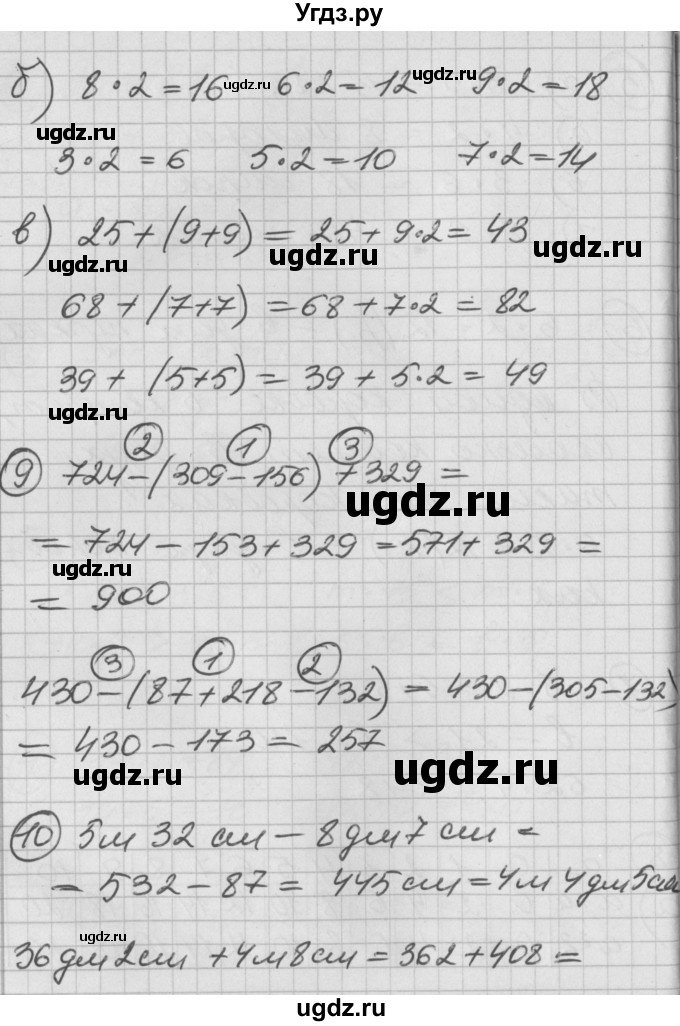 Угдз.ру
б) 8·2=16 ugdz.ru 6·2=12 ugdz.ru 9·2=18
ugdz.ru
3·2=6 5·2=10 7·2=14
в) 25+(9+9)=25+9·2=43
ugdz.ru ugdz.ru ugdz.ru
68+(7+7)=68+7·2=82
39+(5+5)=39+5·2=49
ugdz.ru
2 1 3
9 724-(309-156)+329=
ugdz.ru
=724-153+329=571+329=
ugdz.ru
=900
3 1 2
430-(87+218-132)=430-(305-132)
=430-173=257
ugdz.ru ugdz.ru
10 5м 32 см - 8дм7см=
=532-87=445см=4м 4дм5см
ugdz.ru
36дм2см+4м8см=362+408=
ugdz.ru